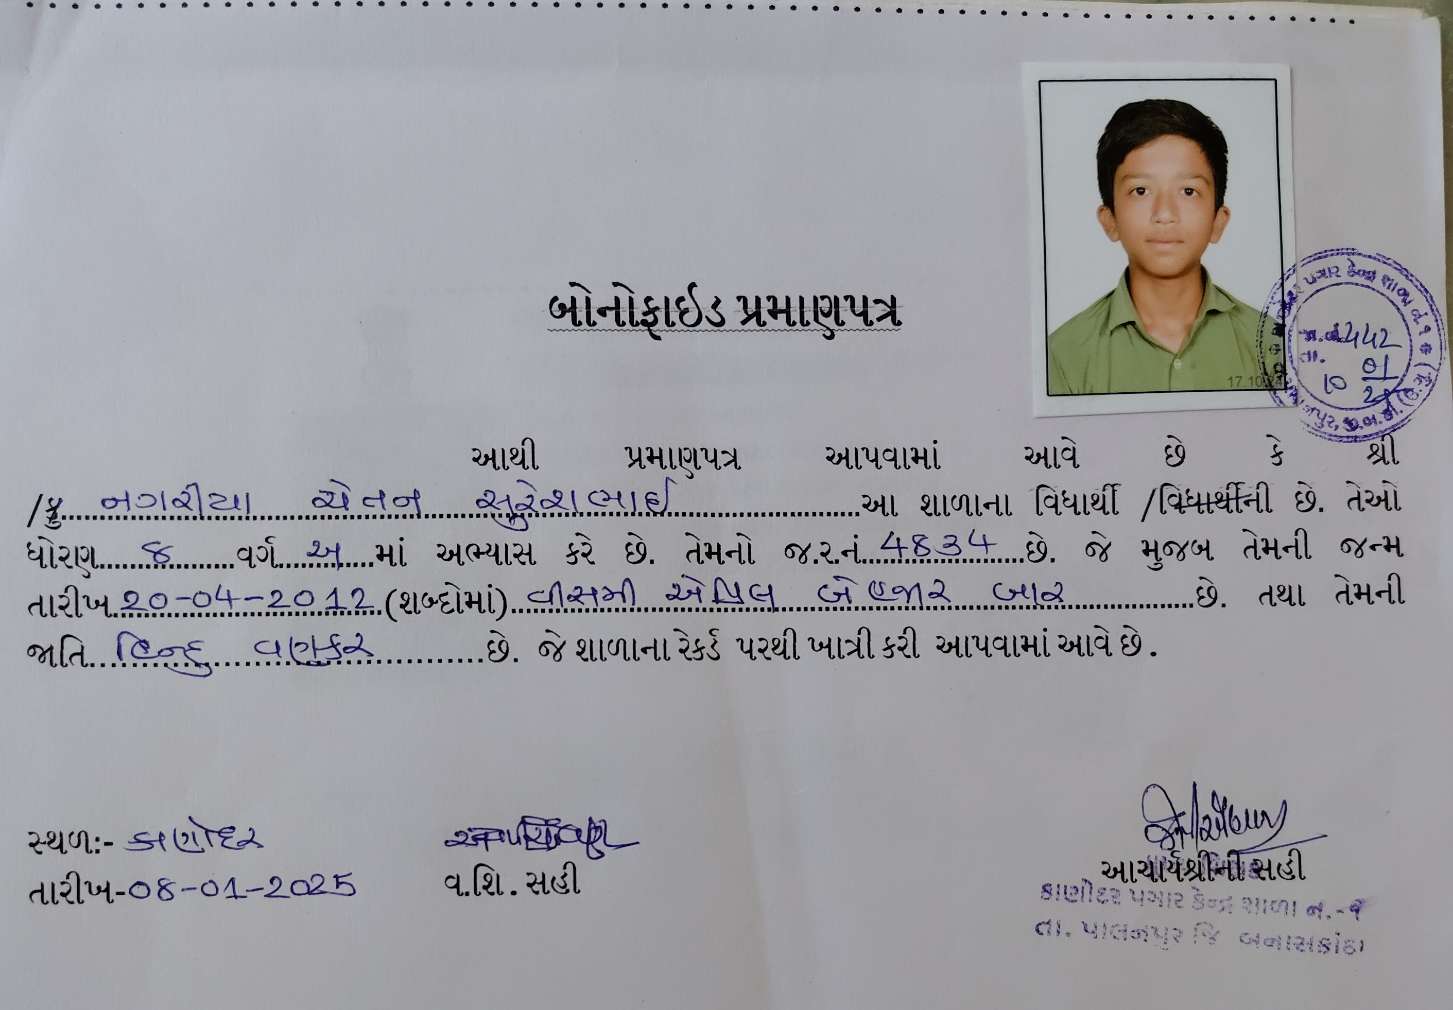 બોનોફાઈડ પ્રમાણપત્ર
17.10
પગાર કેન્દ્ર શાળા નં.૧
442
તા.
10 01
આથી પ્રમાણપત્ર આપવામાં આવે છે કે શ્રી
/કુ. નગરીયા ચેતન સુરેશભાઈ આ શાળાના વિધાર્થી /વિધાર્થીની છે. તેઓ
ધોરણ 8 વર્ગ અ માં અભ્યાસ કરે છે. તેમનો જ.ર.નં. 4834 છે. જે મુજબ તેમની જન્મ
તારીખ 20-04-2012 (શબ્દોમાં) વીસમી એપ્રિલ બે હજાર બાર છે. તથા તેમની
જાતિ હિન્દુ વણકર છે. જે શાળાના રેકર્ડ પરથી ખાત્રી કરી આપવામાં આવે છે.
સ્થળ:- કાણોદર
તારીખ-08-01-2025
વ.શિ. સહી
આચાર્યશ્રીની સહી
કાણોદર પગાર કેન્દ્ર શાળા નં.-૧
તા. પાલનપુર જિ બનાસકાંઠા